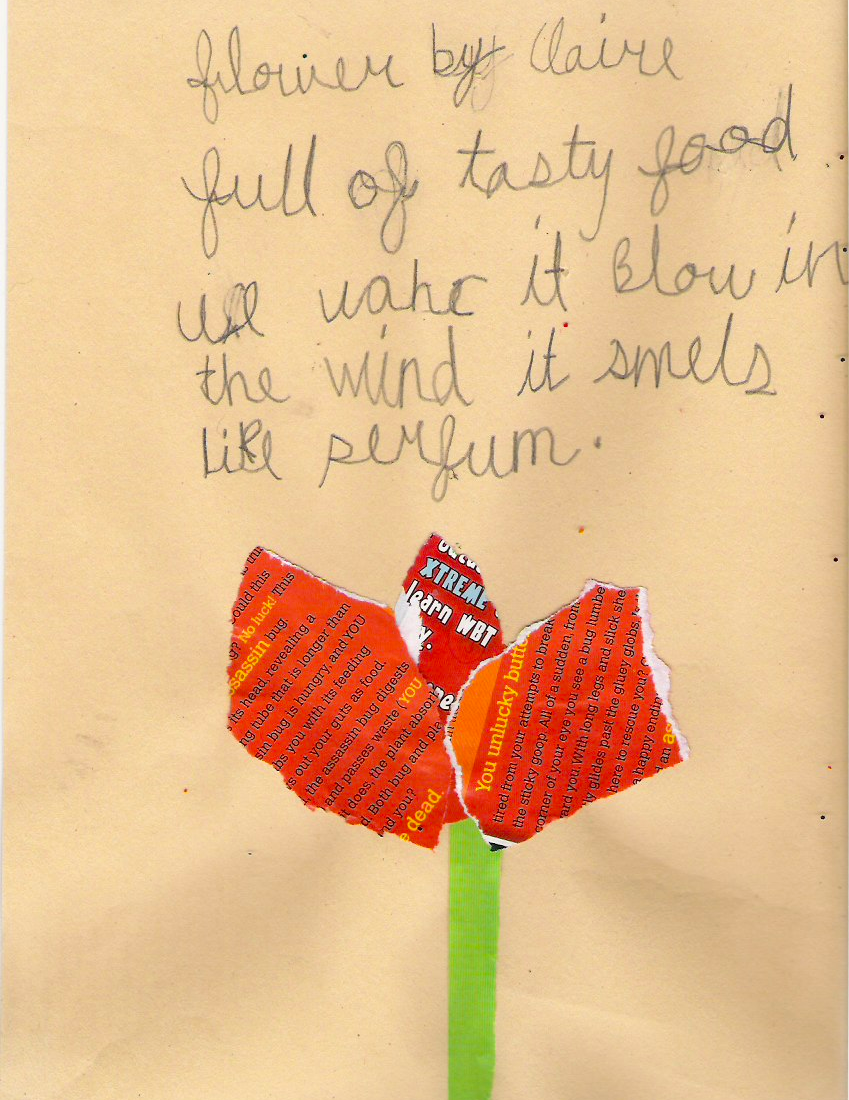 flower by Claire
full of tasty food
we wahc it Blow in
the wind it smels
like perfum.
ould this
g? No luck! This
ssassin bug
its head, revealing a
ng tube that is longer than
sin bug is hungry, and YOU
bs you with its feeding
s out your guts as food.
the assassin bug digests
and passes waste (YOU
t does, the plant absor
d. Both bug and pla
nd you?
e dead.
XTREME
learn WBT
y.
You unlucky butt
tired from your attempts to break
the sticky goop. All of a sudden, from
corner of your eye you see a bug lumbe
ard you. With long legs and slick she
ly glides past the gluey globs.
here to rescue you?
a happy endin
an as